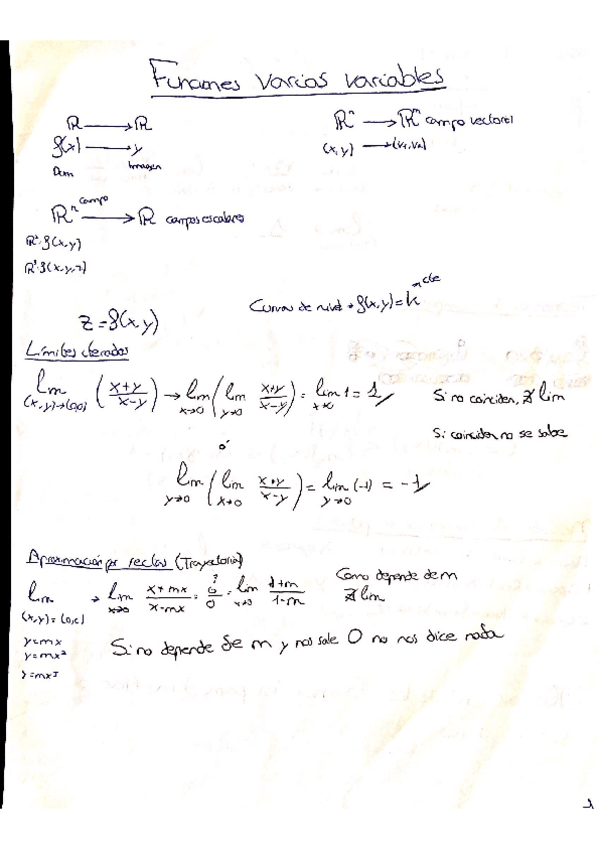 Funciones Varias variables
ℝ → ℝ
f(x) → y
Dom Imagen
ℝⁿ → ℝᵐ campo vectorial
(x, y) → (v₁, v₂)
ℝⁿ campo → ℝ campos escalares
ℝ² f(x, y)
ℝ³ f(x, y, z)
z = f(x, y)
Curvas de nivel → f(x, y) = k cte
Límites iterados
lim (x,y)→(0,0) (x+y / x-y) → lim x→0 (lim y→0 x+y / x-y) = lim x→0 1 = 1
Si no coinciden, ∄ lim
Si coinciden no se sabe
ó
lim y→0 (lim x→0 x+y / x-y) = lim y→0 (-1) = -1
Aproximación por rectas (Trayectoria)
lim → lim x→0 x+mx / x-mx = 0/0 ? = lim x→0 1+m / 1-m
Como depende de m
∄ lim
y = mx
y = mx²
Si no depende de m y nos sale 0 no nos dice nada
1